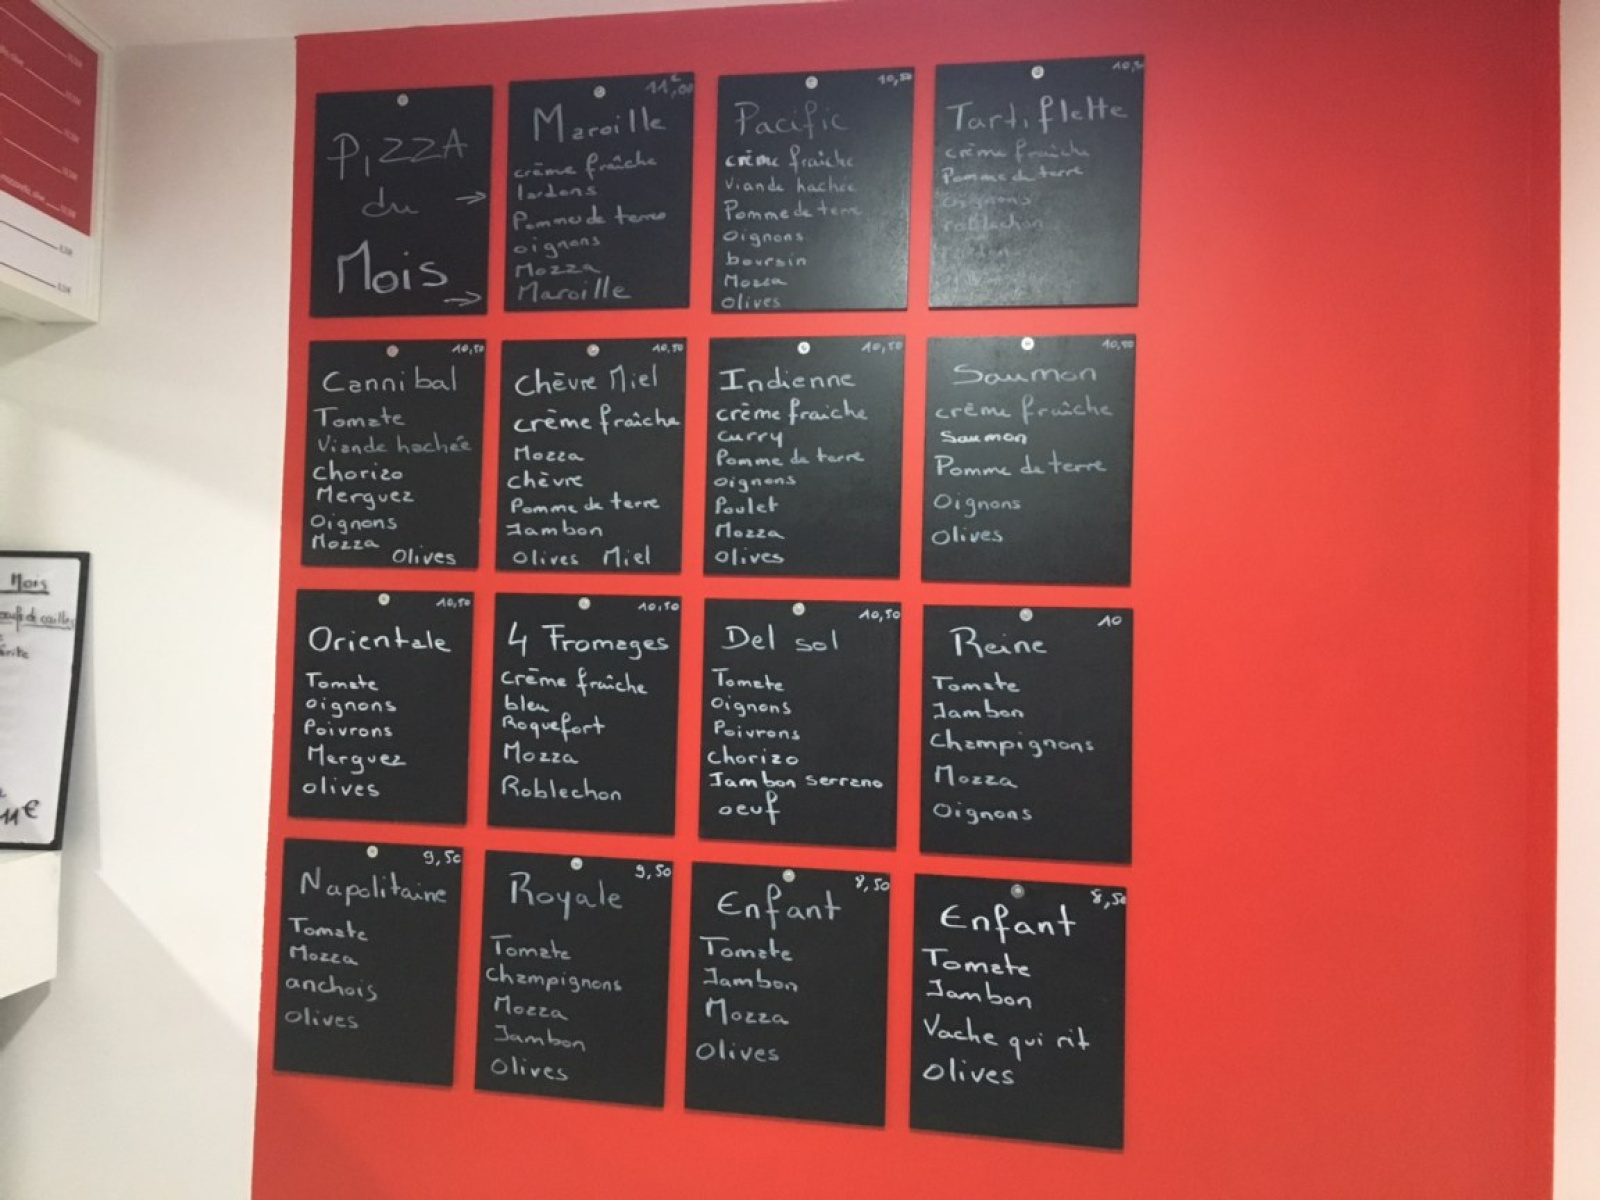 PIZZA
du →
Mois
→
11,00€
Maroille
crème fraîche
lardons
Pomme de terres
oignons
Mozza
Maroille
10,50
Pacific
crème fraîche
Viande hachée
Pomme de terre
Oignons
boursin
Mozza
Olives
10,5
Tartiflette
crème fraîche
Pomme de terre
oignons
roblechon
10,50
Cannibal
Tomate
Viande hachée
Chorizo
Merguez
Oignons
Mozza
Olives
10,50
Chèvre Miel
crème fraîche
Mozza
chèvre
Pomme de terre
Jambon
Olives Miel
10,50
Indienne
crème fraiche
curry
Pomme de terre
oignons
Poulet
Mozza
Olives
10,50
Saumon
crème fraîche
Saumon
Pomme de terre
Oignons
Olives
10,50
Orientale
Tomate
oignons
Poivrons
Merguez
olives
10,50
4 Fromages
crème fraîche
bleu
Roquefort
Mozza
Roblechon
10,50
Del sol
Tomate
Oignons
Poivrons
Chorizo
Jambon serrano
oeuf
10
Reine
Tomate
Jambon
Champignons
Mozza
Oignons
9,50
Napolitaine
Tomate
Mozza
anchois
Olives
9,50
Royale
Tomate
Champignons
Mozza
Jambon
Olives
8,50
Enfant
Tomate
Jambon
Mozza
Olives
8,50
Enfant
Tomate
Jambon
Vache qui rit
Olives
Mois
de cailles
11€